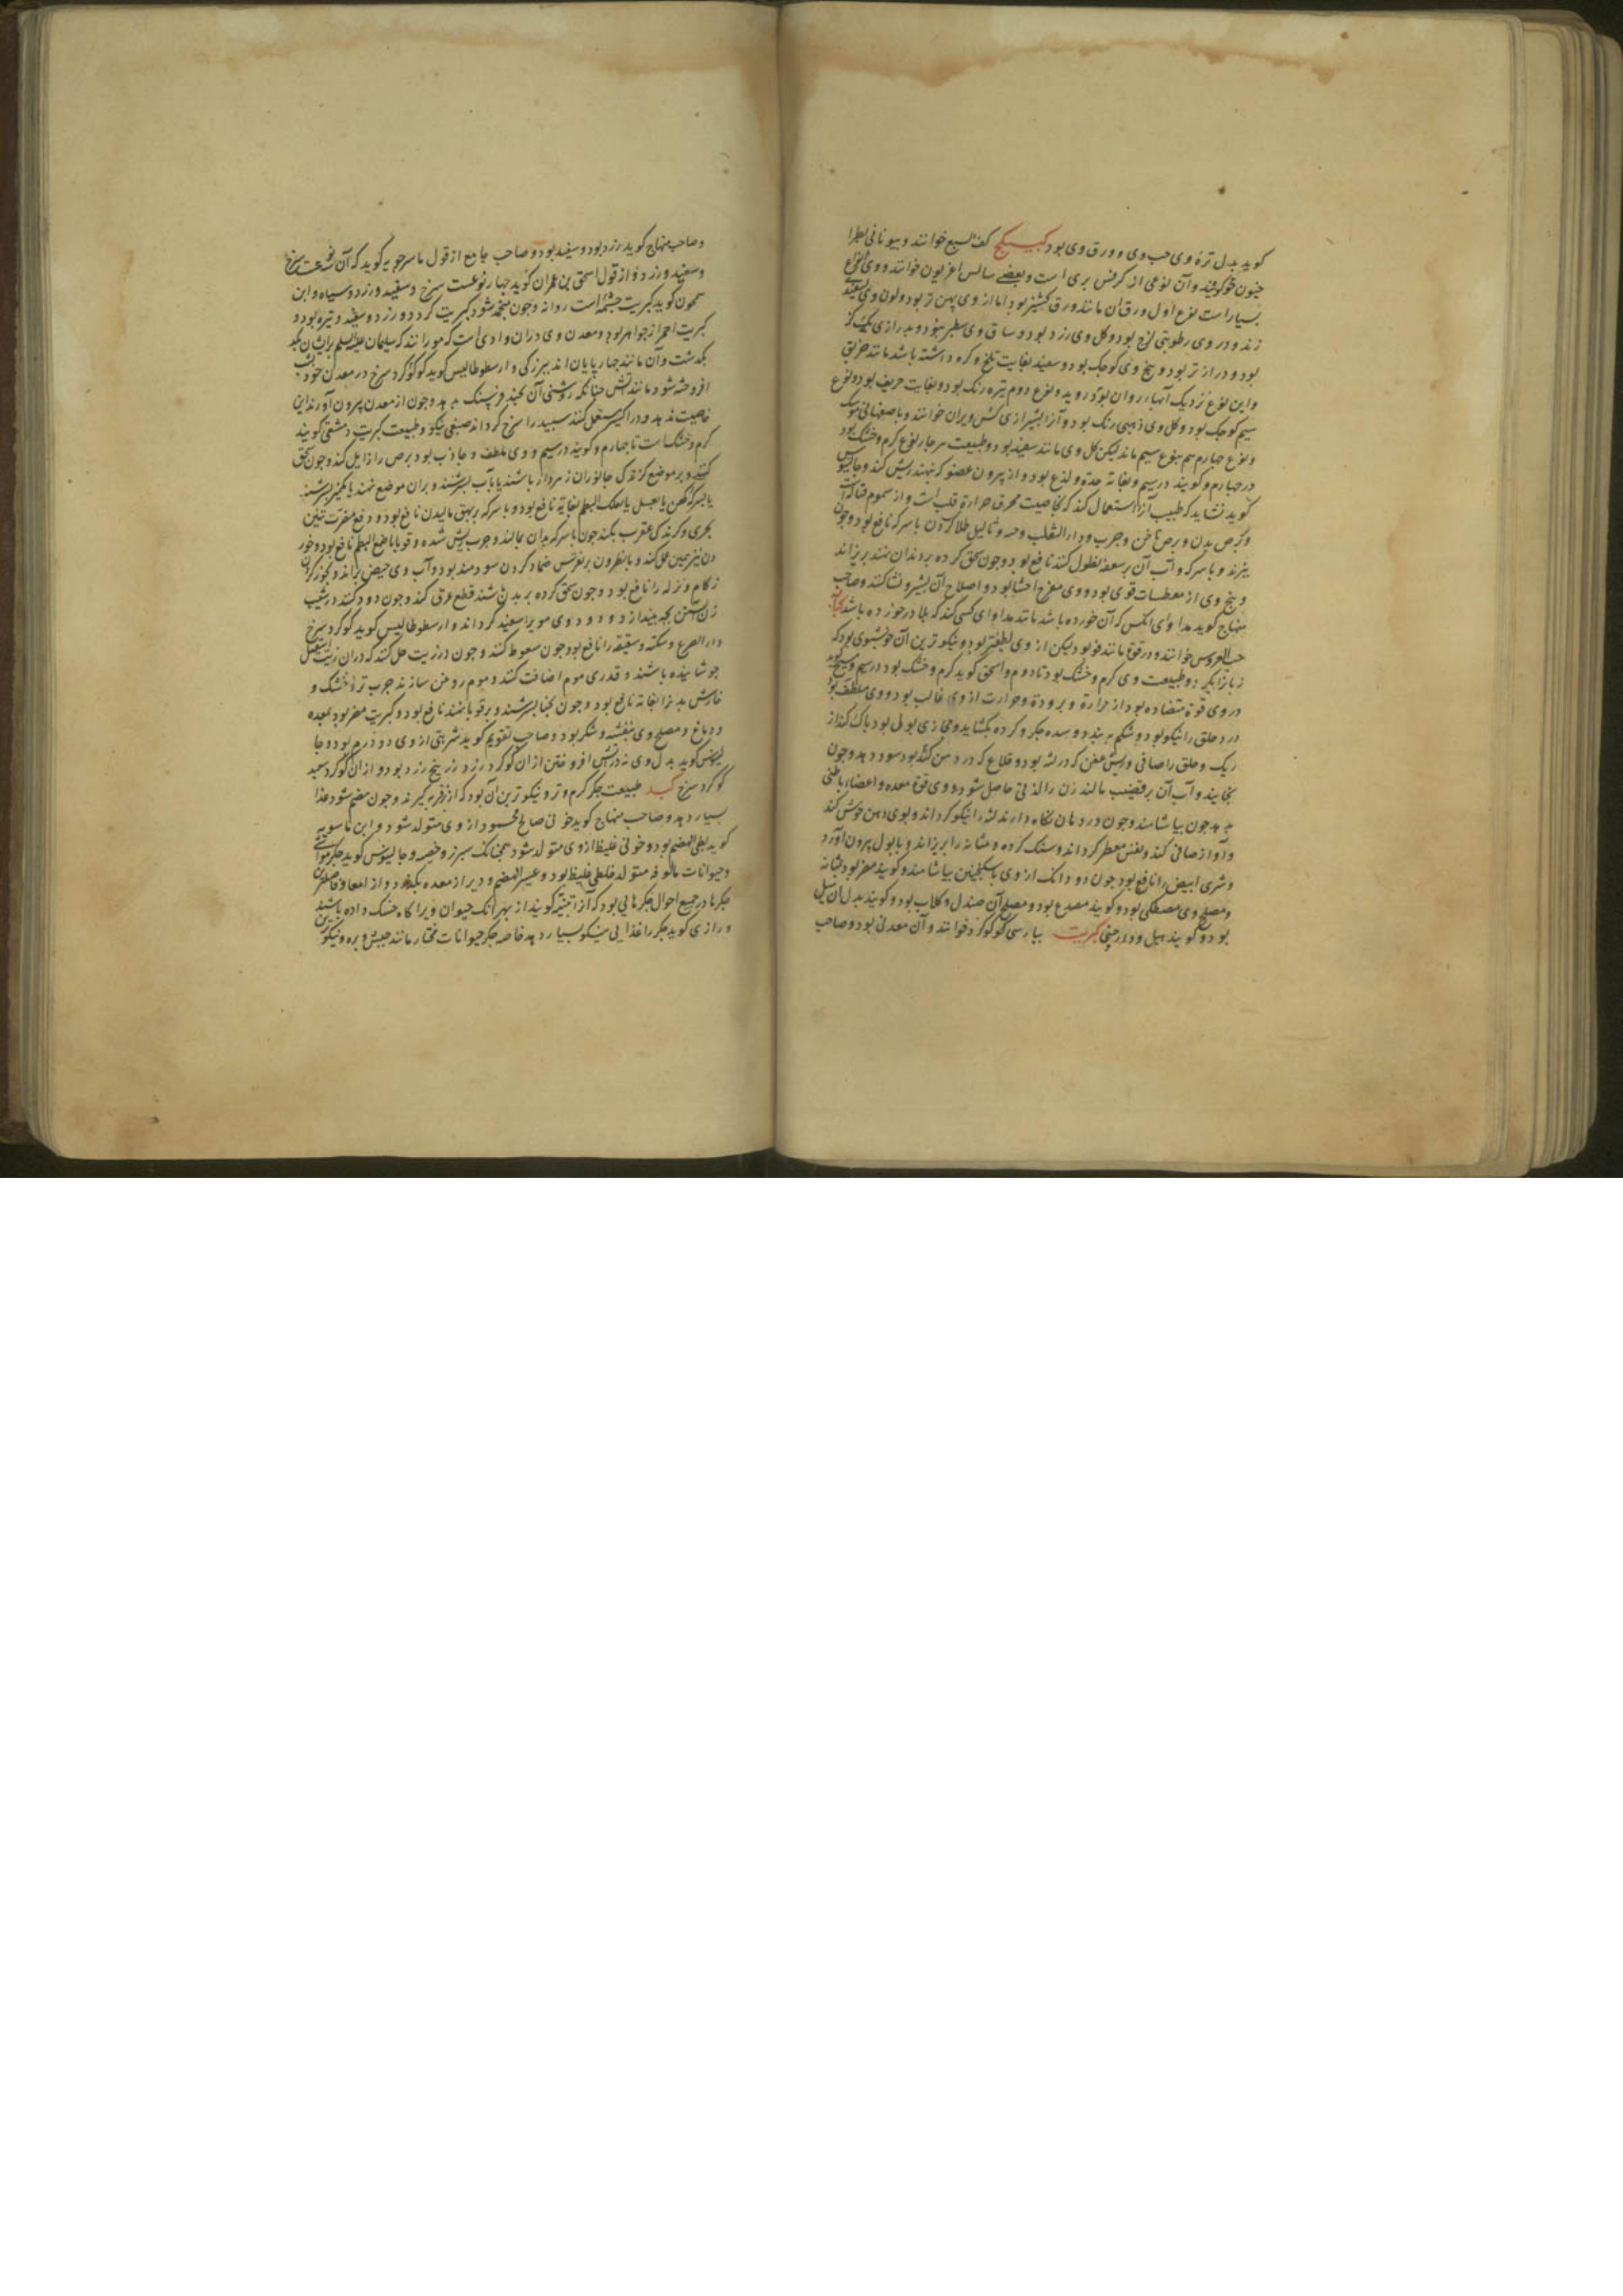 کوید بدل تره وی حب وی و ورق وی بود کبیکج کف السبع خوانند و بیونانی بطرا
خیون خوکویند وآن نوعی از کرفس بری است و بعضی سالس اغریون خوانند و وی انواع
بسیار است نوع اول ورق آن مانند ورق کشنیز بود اما از وی پهن تر بود و لون وی بسفیدی
زند و در وی رطوبتی لزج بود و کل وی زرد بود و ساق وی سطبر نبود و بدرازی یک گز
بود و دراز تر بود و بیخ وی کوچک بود و سفید بغایت تلخ و کره داشته باشد مانند خربق
واین نوع نزدیک آبهاء روان بود و روید و نوع دوم تیره رنک بود و بغایت حریف بود و نوع
سیم کوچک بود و کل وی ذهبی رنک بود وآنرا بشیرازی کس ویران خوانند و باصفهانی موسک
ونوع چهارم هم بنوع سیم ماند لیکن کل وی مانند سفید بود و طبیعت هر چار نوع کرم و خشک بود
در چهارم وکویند در سیم و بغایة حدة و لذع بود و از بیرون عضو که نهند ریش کند و جالینوس
کوید نشاید که طبیب آنرا استعمال کند که بخاصیت محرق حرارة قلب است و از سموم قتاله است
وبرص بدن و برص ناخن و جرب و داء الثعلب و ثالیل طلا کردن با سرکه نافع بود و چون
بپزند و با سرکه و آب آن بر سعفه نطول کنند نافع بود و چون سحق کرده بر دندان نهند بریزاند
و بیخ وی از معطسات قوی بود و وی مقرح احشا بود و اصلاح آن بشیر و نشا کنند و صاحب
منهاج کوید مداوای انکس که آن خورده باشد مانند مداوای کسی کند که بلادر خورده باشد کبابه
حب العروس خوانند و در قوة مانند فو بود لیکن از وی لطیفتر بود و نیکوترین آن خوشبوی بود که
زبانرا بگیرد و طبیعت وی کرم و خشک بود تا دوم و اسحق کوید کرم و خشک بود در سیم و مسیح کوید
در وی قوة متضاده بود از حرارة و برودة و حرارت از وی غالب بود و وی ملطف بود
درد حلق را نیکو بود و شکم ببندد و سده جکر و کرده بکشاید و مجازی بولی بود پاک کند از
ریک و حلق را صافی و ریش عفن که در لثه بود و قلاع که در دهن کند بود سود دهد و چون
بخایند و آب آن بر قضیب مالند زن را لذتی حاصل شود و وی قوة معده و اعضاء باطنی
بدهد چون بیاشامند و چون در دهان نکاه دارند لثه را نیکو کرداند و بوی دهن خوش کند
و آواز صافی کند و نفس معطر کرداند و سنک کرده و مثانه را بریزاند و با بول بیرون آورد
و شری ابیض را نافع بود چون دو دانک از وی با سکنجبین بیاشامند و کویند مضر بود بمثانه
و مصلح وی مصطکی بود و کویند مصدع بود و مصلح آن صندل و کلاب بود و کویند بدل آن سیل
بود و کویند هیل و دارچینی کبریت بپارسی کوکرد خوانند و آن معدنی بود و صاحب
و صاحب منهاج کوید زرد بود و سفید بود و صاحب جامع از قول ماسرجویه کوید که آن سه نوعست سرخ
و سفید و زرد و از قول اسحق بن عمران کوید چهار نوعست سرخ و سفید و زرد و سیاه و ابن
سمحون کوید کبریت چشمه است روانه و چون منجمد شود کبریت کردد و زرد و سفید و تیره بود و
کبریت احمر از جواهر بود و معدن وی دران وادی است که مورانند که سلیمان علیه السلم برایشان
بکذشت و آن مانند چهارپایان اند ببزرکی و ارسطوطالیس کوید کوکرد سرخ در معدن خود شب
افروخته شود مانند آتش چنانکه روشنی آن بچند فرسنک بدهد و چون از معدن بیرون آورند این
خاصیت ندهد و در اکسیر مستعمل کنند سپید را سرخ کرداند صبغی نیکو و طبیعت کبریت دمشقی کویند
کرم و خشک است تا چهارم و کویند در سیم و وی ملطف و جاذب بود برص را زایل کند و چون سحق
کنند و بر موضع کزندکی جانوران زهردار باشند یا بآب بسرشند و بران موضع نهند یا بکمیز بسرشند
یا بسرکه کهن یا بعسل یا بعلک البطم بغایة نافع بود و با سرکه بر بهق مالیدن نافع بود و دفع مضرت تنین
بحری و کزندکی عقرب بکند چون با سرکه بدان بمالند و جرب ریش شده و قوبا با صمغ البطم نافع بود و خور
دن نیز همین عمل کند و با نطرون بر نقرس ضماد کردن سودمند بود و آب وی حیض براند و بخور کردن
زکام و نزله را نافع بود و چون سحق کرده بر بدن باشند قطع عرق کند و چون دود کنند در شیب
زن آبستن بچه بیندازد و دود وی مویرا سفید کرداند و ارسطوطالیس کوید کوکرد سرخ
داء الصرع و سکته و شقیقه را نافع بود چون سعوط کنند و چون در زیت حل کنند که دران زیت
جوشانیده باشند و قدری موم اضافت کنند و موم روغن سازند جرب تر و خشک و
خارش بدنرا بغایة نافع بود و چون بحنا بسرشند و بر قوبا نهند نافع بود و کبریت مضر بود بمعده
و دماغ و مصلح وی بنفشه و شکر بود و صاحب تقویم کوید شربتی از وی دو درم بود و جا
لینوس کوید بدل وی در آتش افروختن از ان کوکرد زرد زرنیخ زرد بود و از ان کوکرد سفید
کوکرد سرخ کبد طبیعت جکر کرم و تر و نیکوترین آن بود که از فربه کیرند و چون هضم شود غذا
بسیار دهد و صاحب منهاج کوید خونی صالح محمود از وی متولد شود و ابن ماسویه
کوید بطی الهضم بود و خونی غلیظ از وی متولد شود همچنانکه سپرز و خصیه و جالینوس کوید جکر مواشی
و حیوانات مالوفه متولد خلطی غلیظ بود و عسیر الهضم و دیر از معده بکذرد و از امعا و فاضلترین
جکرها در جمیع احوال جکرهایی بود که آنرا تینیه کویند از بهر آنک حیوان ویرا کاه خشک داده باشند
و رازی کوید جکر را غذایی نیکو بسیار دهد خاصه جکر حیوانات مختار مانند میش و بره و نیکو